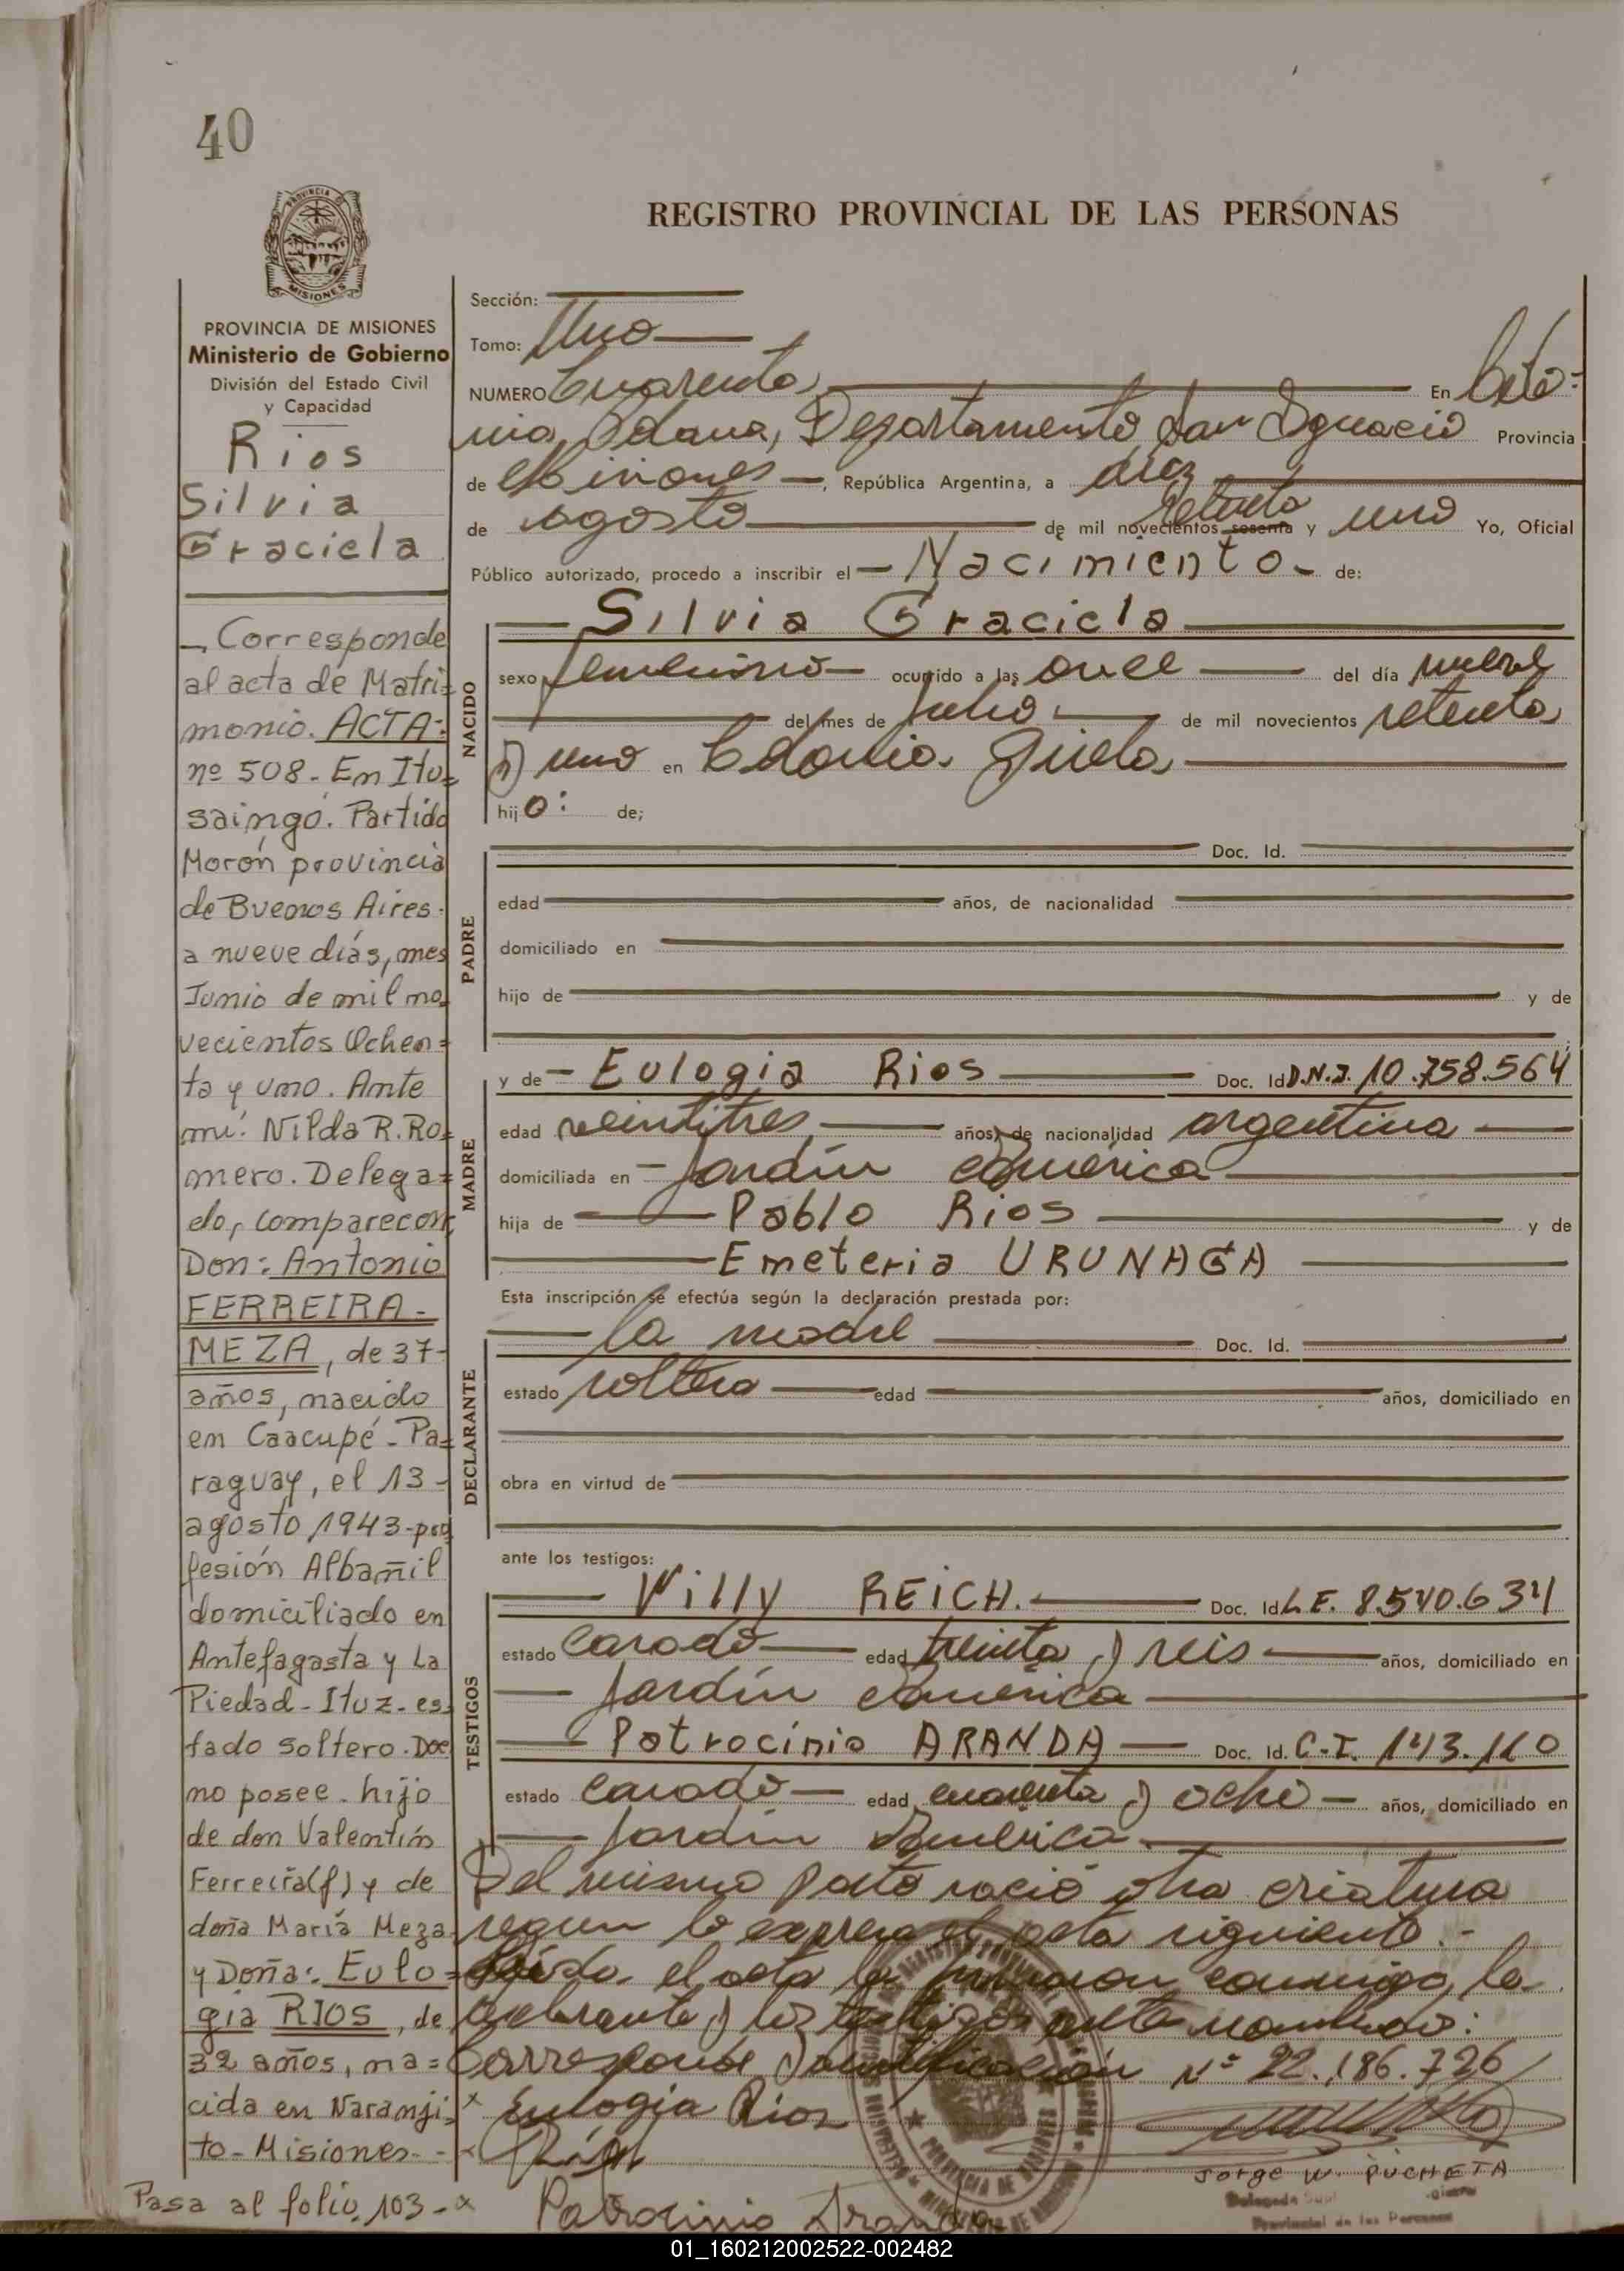 40
REGISTRO PROVINCIAL DE LAS PERSONAS
PROVINCIA
MISIONES
PROVINCIA DE MISIONES
Ministerio de Gobierno
División del Estado Civil
y Capacidad
Rios
Silvia
Graciela
_ Corresponde
al acta de Matri=
monio. ACTA:
nº 508. En Itu=
saingó. Partido
Morón provincia
de Buenos Aires.
a nueve días, mes
Junio de mil no=
vecientos Ochen=
ta y uno. Ante
mi: Nilda R. Ro=
mero. Delega=
do, comparecen,
Don: Antonio
FERREIRA-
MEZA, de 37-
años, nacido
en Caacupé - Pa=
raguay, el 13 -
agosto 1943- pro
fesión Albañil
domiciliado en
Antefagasta y La
Piedad - Ituz - es=
tado soltero. Doc
no posee. hijo
de don Valentín
Ferreira(f) y de
doña María Meza
y Doña: Eulo=
gia RIOS, de
32 años, na=
cida en Naranji=
to - Misiones. -
Pasa al folio 103 -
Sección:
Tomo: Uno
NUMERO Cuarenta En
Departamento San Ignacio Provincia
de Misiones, República Argentina, a diez
de agosto de mil novecientos sesenta setenta y uno Yo, Oficial
Público autorizado, procedo a inscribir el - Nacimiento - de:
NACIDO
Silvia Graciela
sexo femenino ocurrido a las once del día nueve
del mes de Julio de mil novecientos setenta
y uno en Colonia
hijo: de;
PADRE
Doc. Id.
edad años, de nacionalidad
domiciliado en
hijo de y de
MADRE
y de - Eulogia Rios Doc. Id D.N.I. 10.758.564
edad veintitres años, de nacionalidad argentina
domiciliada en - Jardín América
hija de Pablo Rios y de
Emeteria URUNAGA
Esta inscripción se efectúa según la declaración prestada por:
DECLARANTE
la madre Doc. Id.
estado soltera edad años, domiciliado en
obra en virtud de
ante los testigos:
TESTIGOS
Willy REICH. Doc. Id L.E. 8.540.634
estado casado edad treinta y seis años, domiciliado en
Jardín América
Patrocinio ARANDA Doc. Id. C.I. 143.110
estado casado edad cuarenta y ocho años, domiciliado en
Jardín América
Del mismo parto nació otra criatura
según lo expresa el acta siguiente.-
Leída el acta la firman conmigo la
declarante y los testigos nombrados:
Corresponde identificación Nº 22.186.726
x Eulogia Rios
x
x Patrocinio Aranda
Jorge W. PUCHETA
Provincial de las Personas
01_160212002522-002482